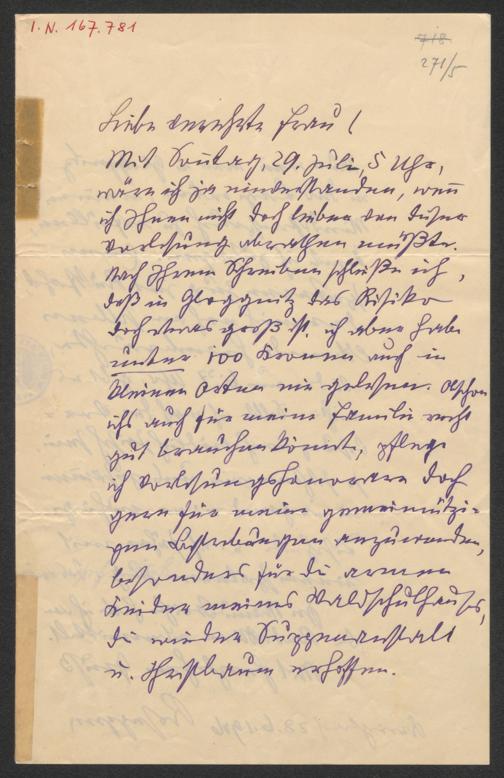 I.N. 167.781
718
271/5
Liebe verehrte Frau!
Mit Sonntag, 29. Juli, 5 Uhr,
wäre ich ja einverstanden, wenn
ich Ihnen nicht doch lieber von dieser
Vorlesung abrathen müßte.
Nach Ihrem Schreiben schließe ich,
daß in Gloggnitz das Risiko
doch etwas groß ist. ich aber habe
unter 100 Kronen auch in
kleinen Orten nie gelesen. Obschon
ichs auch für meine Familie recht
gut brauchen könnt, pflege
ich Vorlesungshonorare doch
gern für meine gemeinnützi-
gen Bestrebungen anzuwenden,
besonders für die armen
Kinder meines Waldschulhauses,
die wieder Suppenanstalt
u. Christbaum erhoffen.